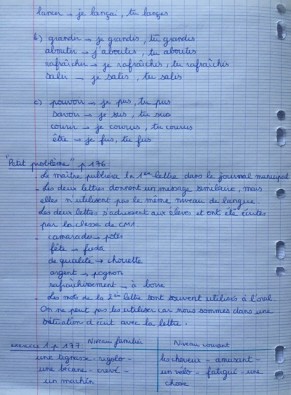 lancer → je lançai, tu lanças
b) grandir → je grandis, tu grandis
aboutir → j'aboutis, tu aboutis
rafraîchir → je rafraîchis, tu rafraîchis
salir → je salis, tu salis
c) pouvoir → je pus, tu pus
savoir → je sus, tu sus
courir → je courus, tu courus
être → je fus, tu fus
Petit problème p 176
- Le maître publiera la 1ère lettre dans le journal municipal
- Les deux lettres donnent un message similaire, mais
elles n'utilisent pas le même niveau de langue.
Les deux lettres s'adressent aux élèves et ont été écrites
par la classe de CM1
camarades → potes
fête →
de qualité → chouette
argent → pognon
rafraîchissement → à boire
- Les mots de la 2ème lettre sont souvent utilisés à l'oral.
On ne peut pas les utiliser car nous sommes dans une
situation d'écrit avec la lettre.
exercice 1 p 177 Niveau familier Niveau courant
une tignasse - rigolo - les cheveux - amusant -
une bécane - crevé - un vélo - fatigué - une
un machin chose